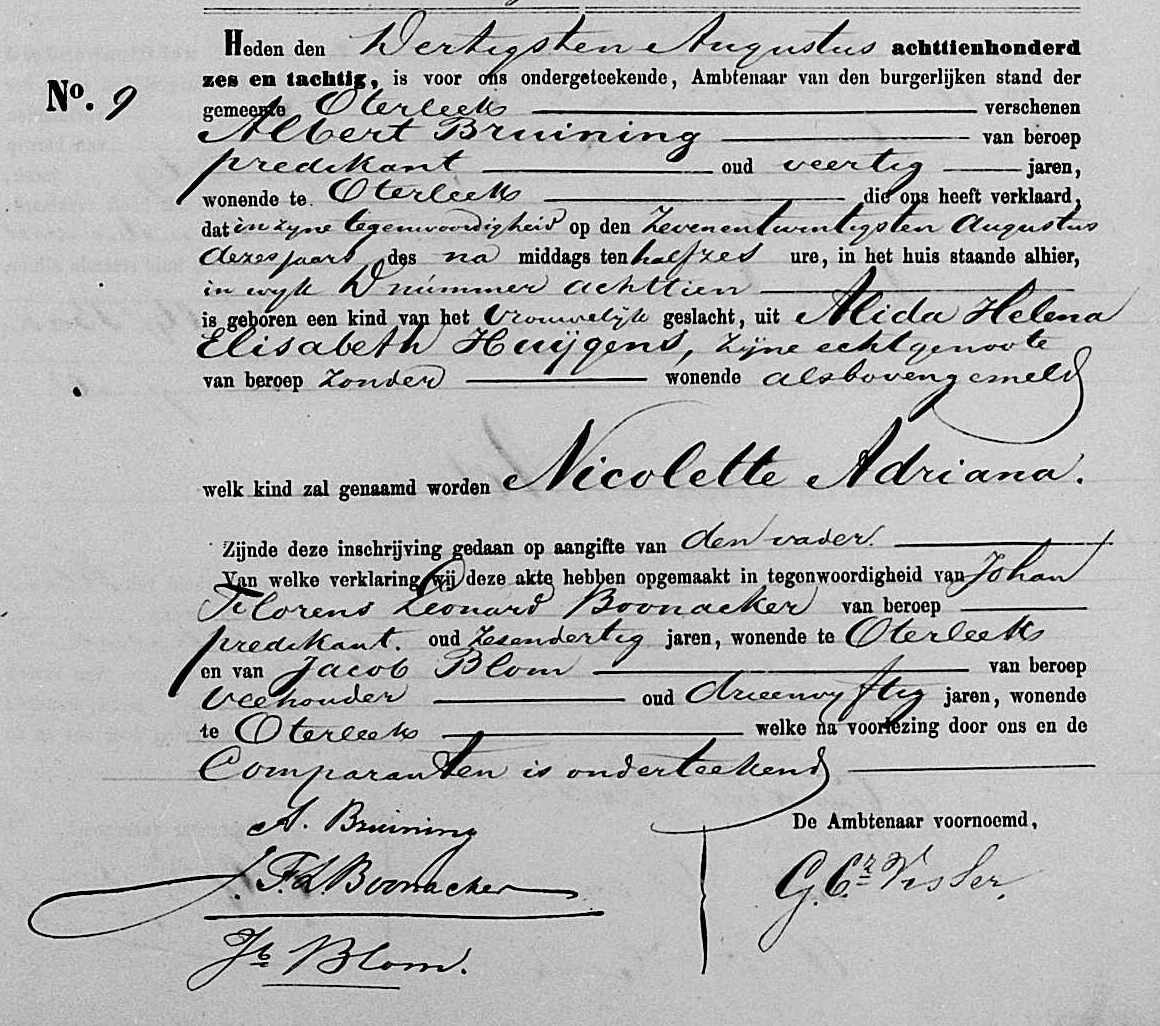 Heden den Dertigsten Augustus achttienhonderd
No. 9
zes en tachtig, is voor ons ondergeteekende, Ambtenaar van den burgerlijken stand der
gemeente Oterleek verschenen
Albert Bruining van beroep
predikant oud veertig jaren,
wonende te Oterleek die ons heeft verklaard,
dat in zijne tegenwoordigheid op den Zevenentwintigsten Augustus
dezes jaars, des na middags ten half zes ure, in het huis staande alhier,
in wijk D nummer achttien
is geboren een kind van het Vrouwelijk geslacht, uit Alida Helena
Elisabeth Huijgens, zijne echtgenoote
van beroep zonder wonende als boven gemeld
welk kind zal genaamd worden Nicolette Adriana.
Zijnde deze inschrijving gedaan op aangifte van den vader.
Van welke verklaring wij deze akte hebben opgemaakt in tegenwoordigheid van Johan
Florens Leonard Boonacker van beroep
predikant. oud Zesendertig jaren, wonende te Oterleek
en van Jacob Blom van beroep
veehouder oud drieenvijftig jaren, wonende
te Oterleek welke na voorlezing door ons en de
Comparanten is onderteekend
A. Bruining
De Ambtenaar voornoemd,
J. F. L. Boonacker
G. Cz. Visser.
Jb Blom.